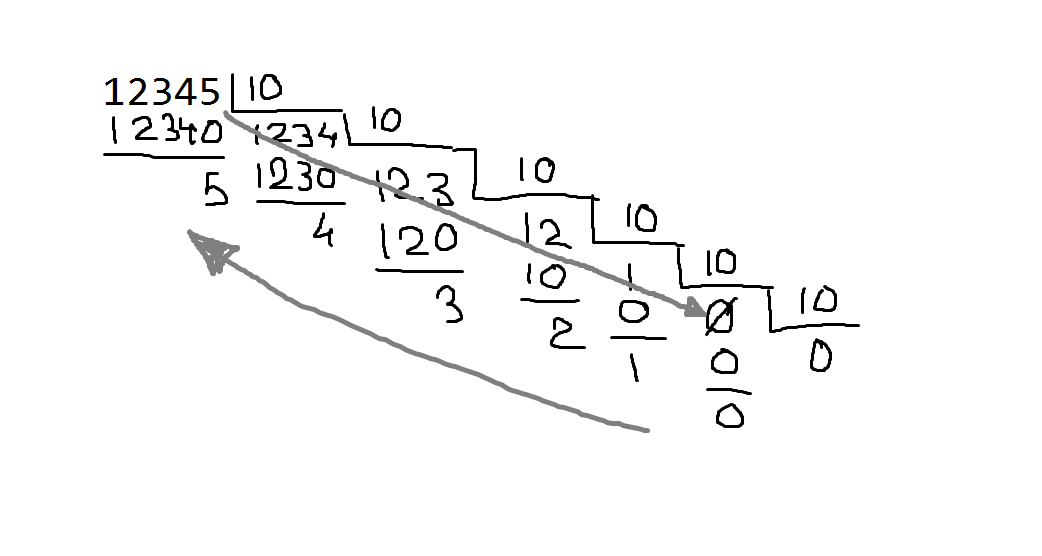 12345 10
12340 1234 10
5 1230 123 10
4 120 12 10
3 10 1 10
2 0 0 10
1 0 0
0